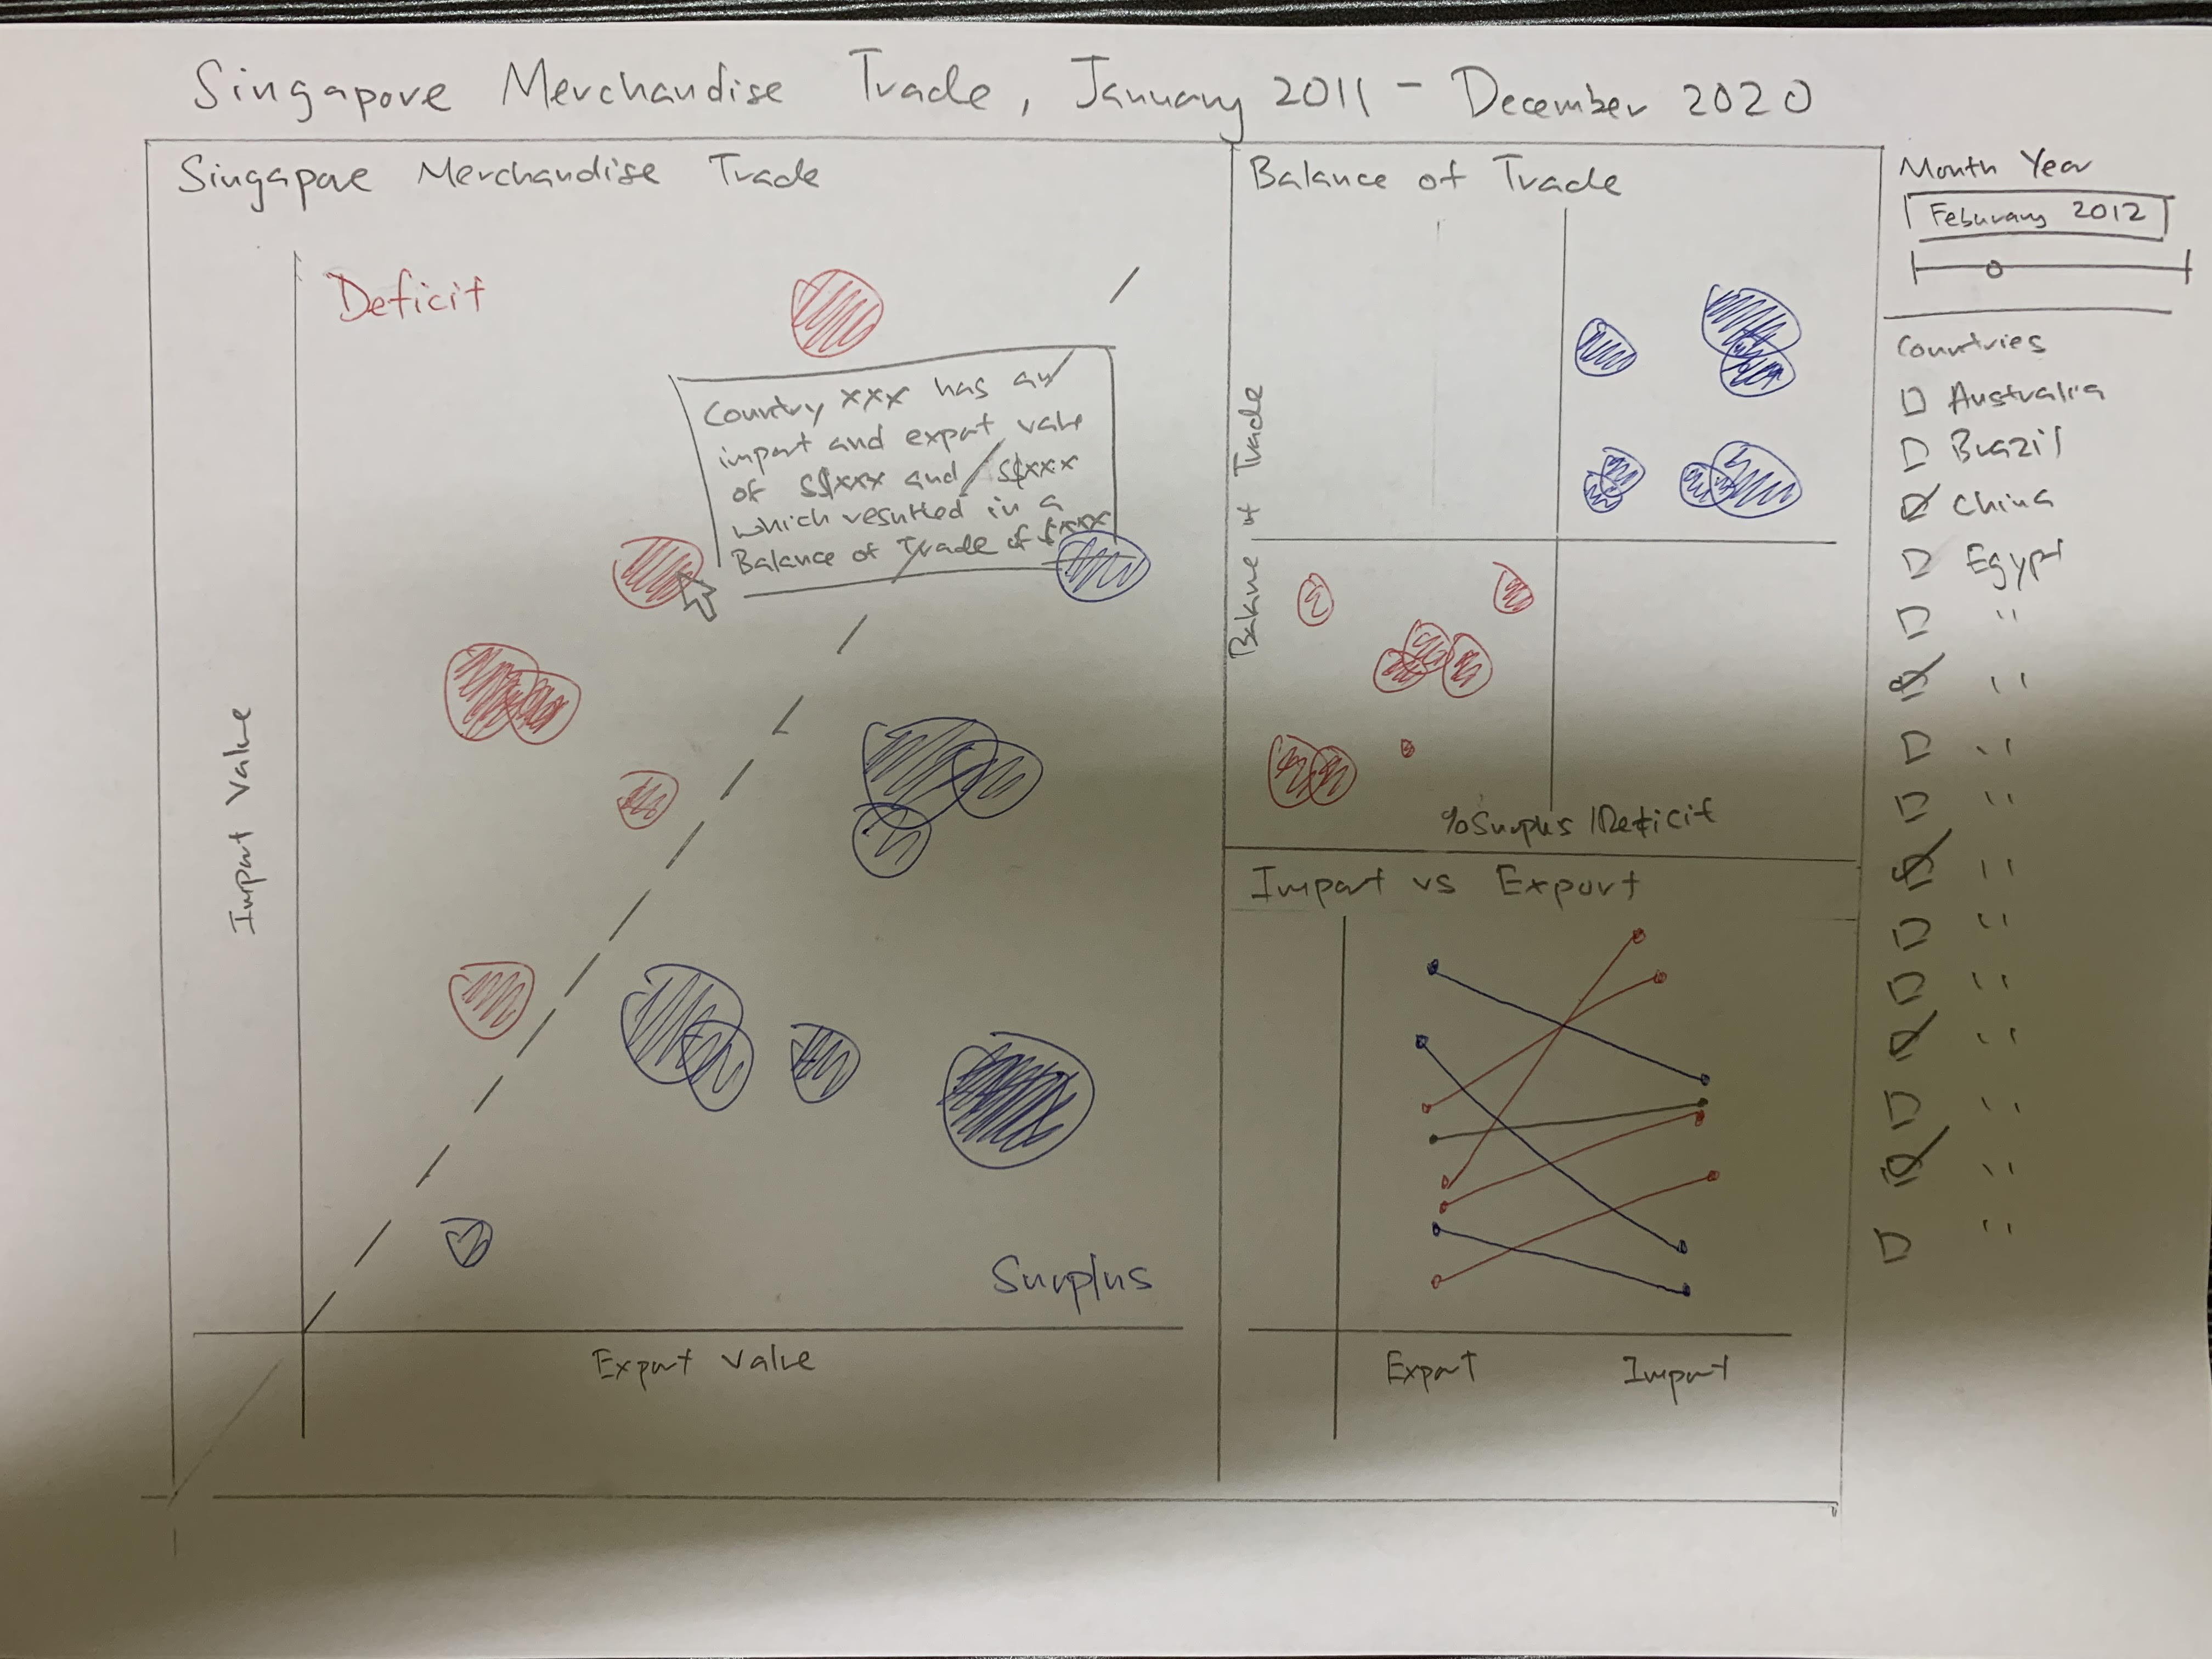 Singapore Merchandise Trade, January 2011 - December 2020
Singapore Merchandise Trade
Deficit
Country xxx has an
import and export value
of S$xxx and S$xxx
which resulted in a
Balance of Trade of $xxx
Import Value
Surplus
Export Value
Balance of Trade
Balance of Trade
% Surplus / Deficit
Import vs Export
Export Import
Month Year
Feburary 2012
Countries
Australia
Brazil
China
Egypt
"
"
"
"
"
"
"
"
"
"
"